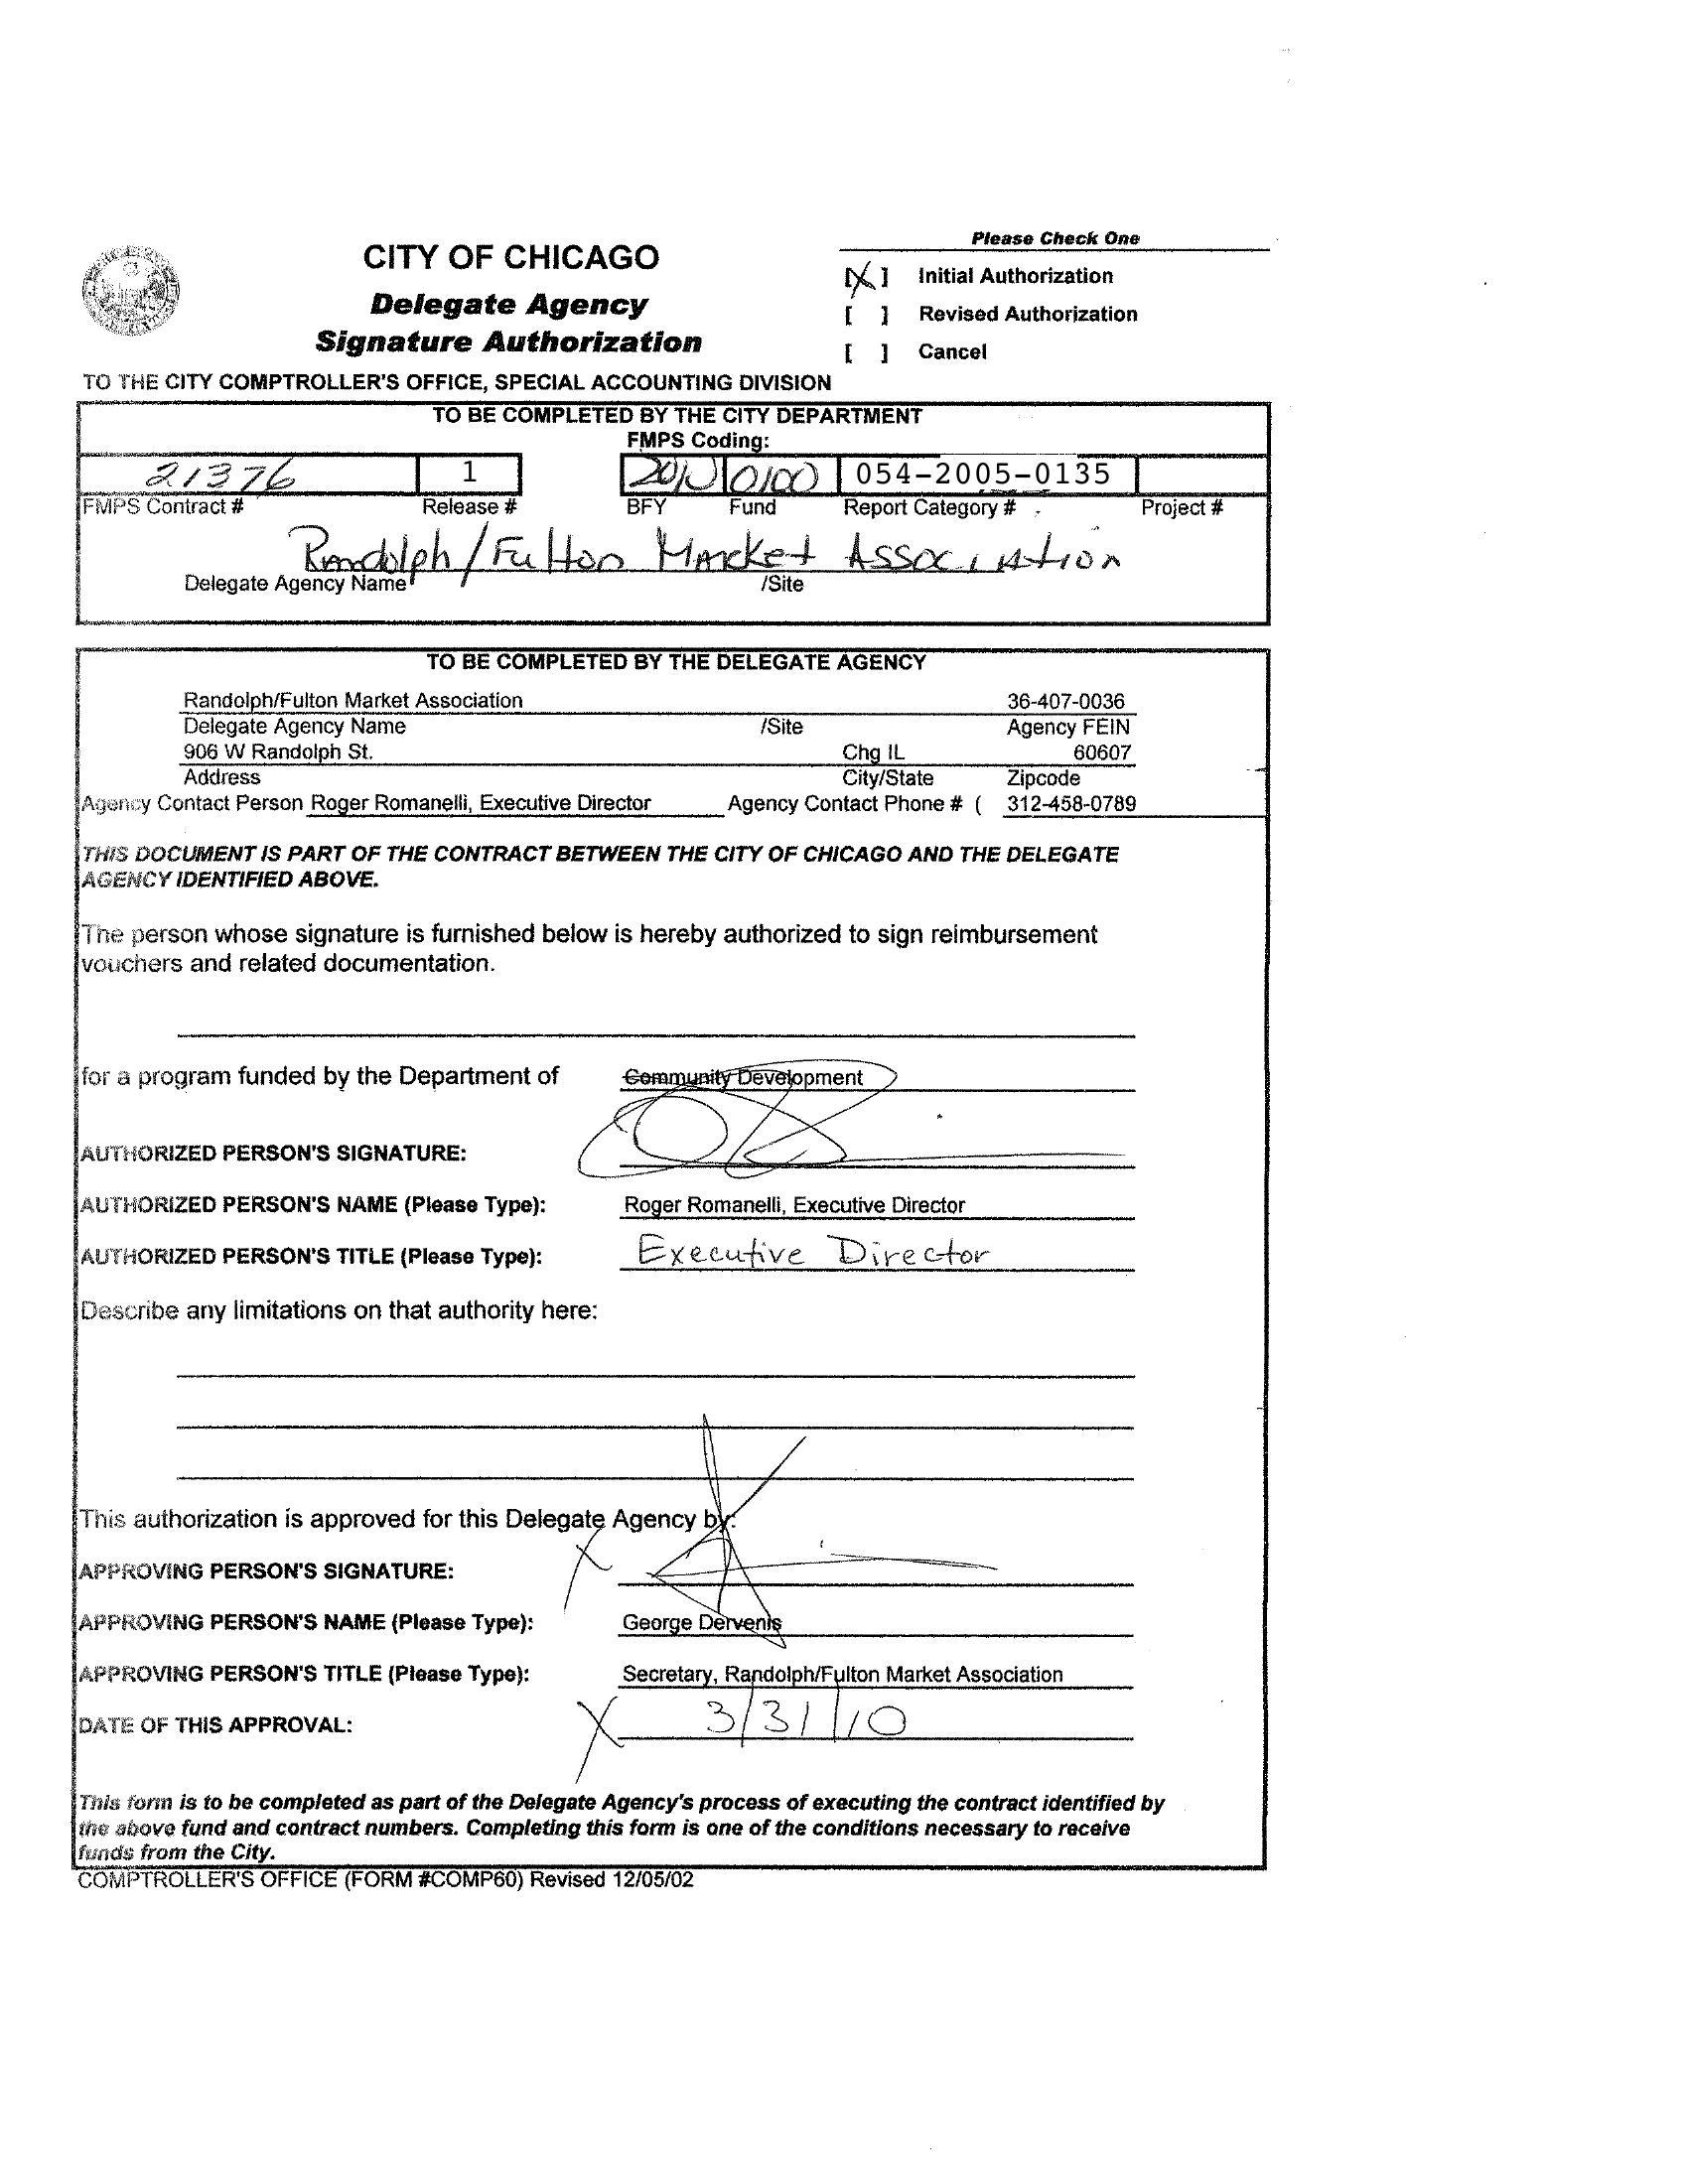 Please Check One
CITY OF CHICAGO
Delegate Agency
Signature Authorization
[X] Initial Authorization
[ ] Revised Authorization
[ ] Cancel
TO THE CITY COMPTROLLER'S OFFICE, SPECIAL ACCOUNTING DIVISION
TO BE COMPLETED BY THE CITY DEPARTMENT
FMPS Coding:
21376 1 2010 0100 054-2005-0135
FMPS Contract # Release # BFY Fund Report Category # Project #
Randolph/Fulton Market Association
Delegate Agency Name /Site
TO BE COMPLETED BY THE DELEGATE AGENCY
Randolph/Fulton Market Association 36-407-0036
Delegate Agency Name /Site Agency FEIN
906 W Randolph St. Chg IL 60607
Address City/State Zipcode
Agency Contact Person Roger Romanelli, Executive Director Agency Contact Phone # ( 312-458-0789
THIS DOCUMENT IS PART OF THE CONTRACT BETWEEN THE CITY OF CHICAGO AND THE DELEGATE
AGENCY IDENTIFIED ABOVE.
The person whose signature is furnished below is hereby authorized to sign reimbursement
vouchers and related documentation.
for a program funded by the Department of Community Development
AUTHORIZED PERSON'S SIGNATURE:
AUTHORIZED PERSON'S NAME (Please Type): Roger Romanelli, Executive Director
AUTHORIZED PERSON'S TITLE (Please Type): Executive Director
Describe any limitations on that authority here:
This authorization is approved for this Delegate Agency by:
APPROVING PERSON'S SIGNATURE: X
APPROVING PERSON'S NAME (Please Type): George Dervenis
APPROVING PERSON'S TITLE (Please Type): Secretary, Randolph/Fulton Market Association
DATE OF THIS APPROVAL: X 3/31/10
This form is to be completed as part of the Delegate Agency's process of executing the contract identified by
the above fund and contract numbers. Completing this form is one of the conditions necessary to receive
funds from the City.
COMPTROLLER'S OFFICE (FORM #COMP60) Revised 12/05/02